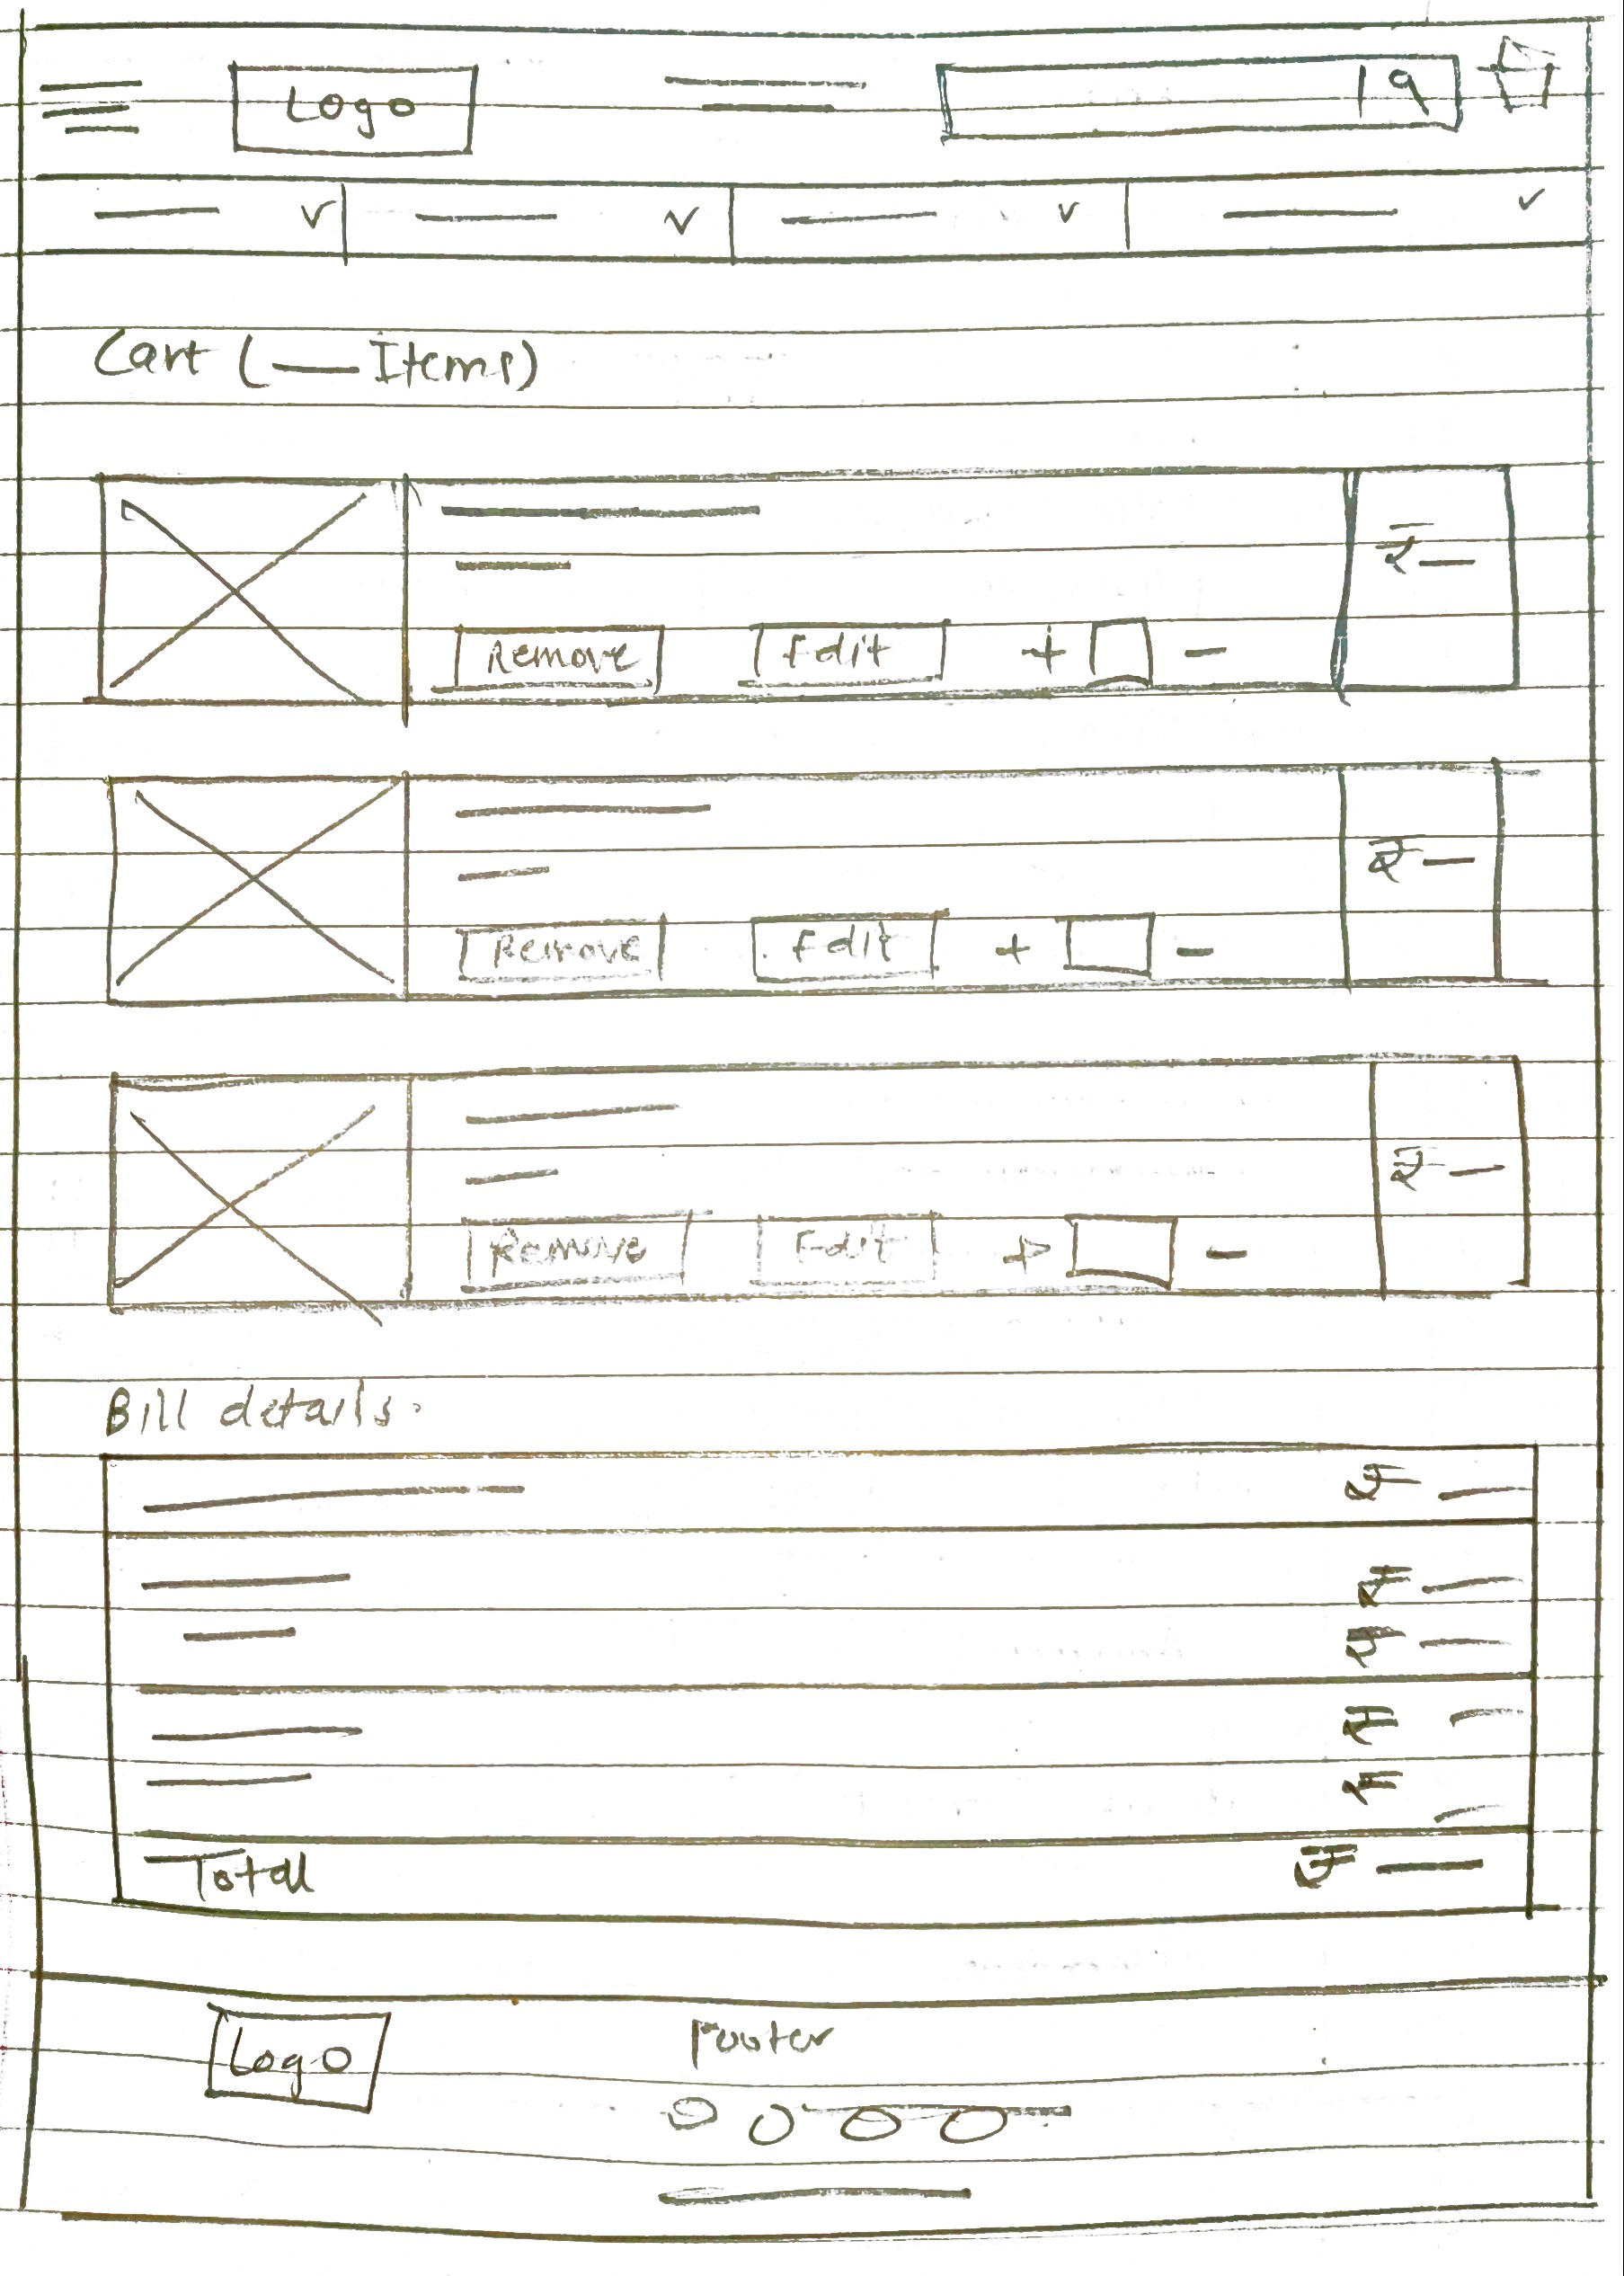 Logo
Cart ( — Items)
₹ —
Remove Edit + -
₹ —
Remove Edit + -
₹ —
Remove Edit + -
Bill details:
₹ —
₹ —
₹ —
₹ —
₹ —
Total ₹ —
Footer
Logo